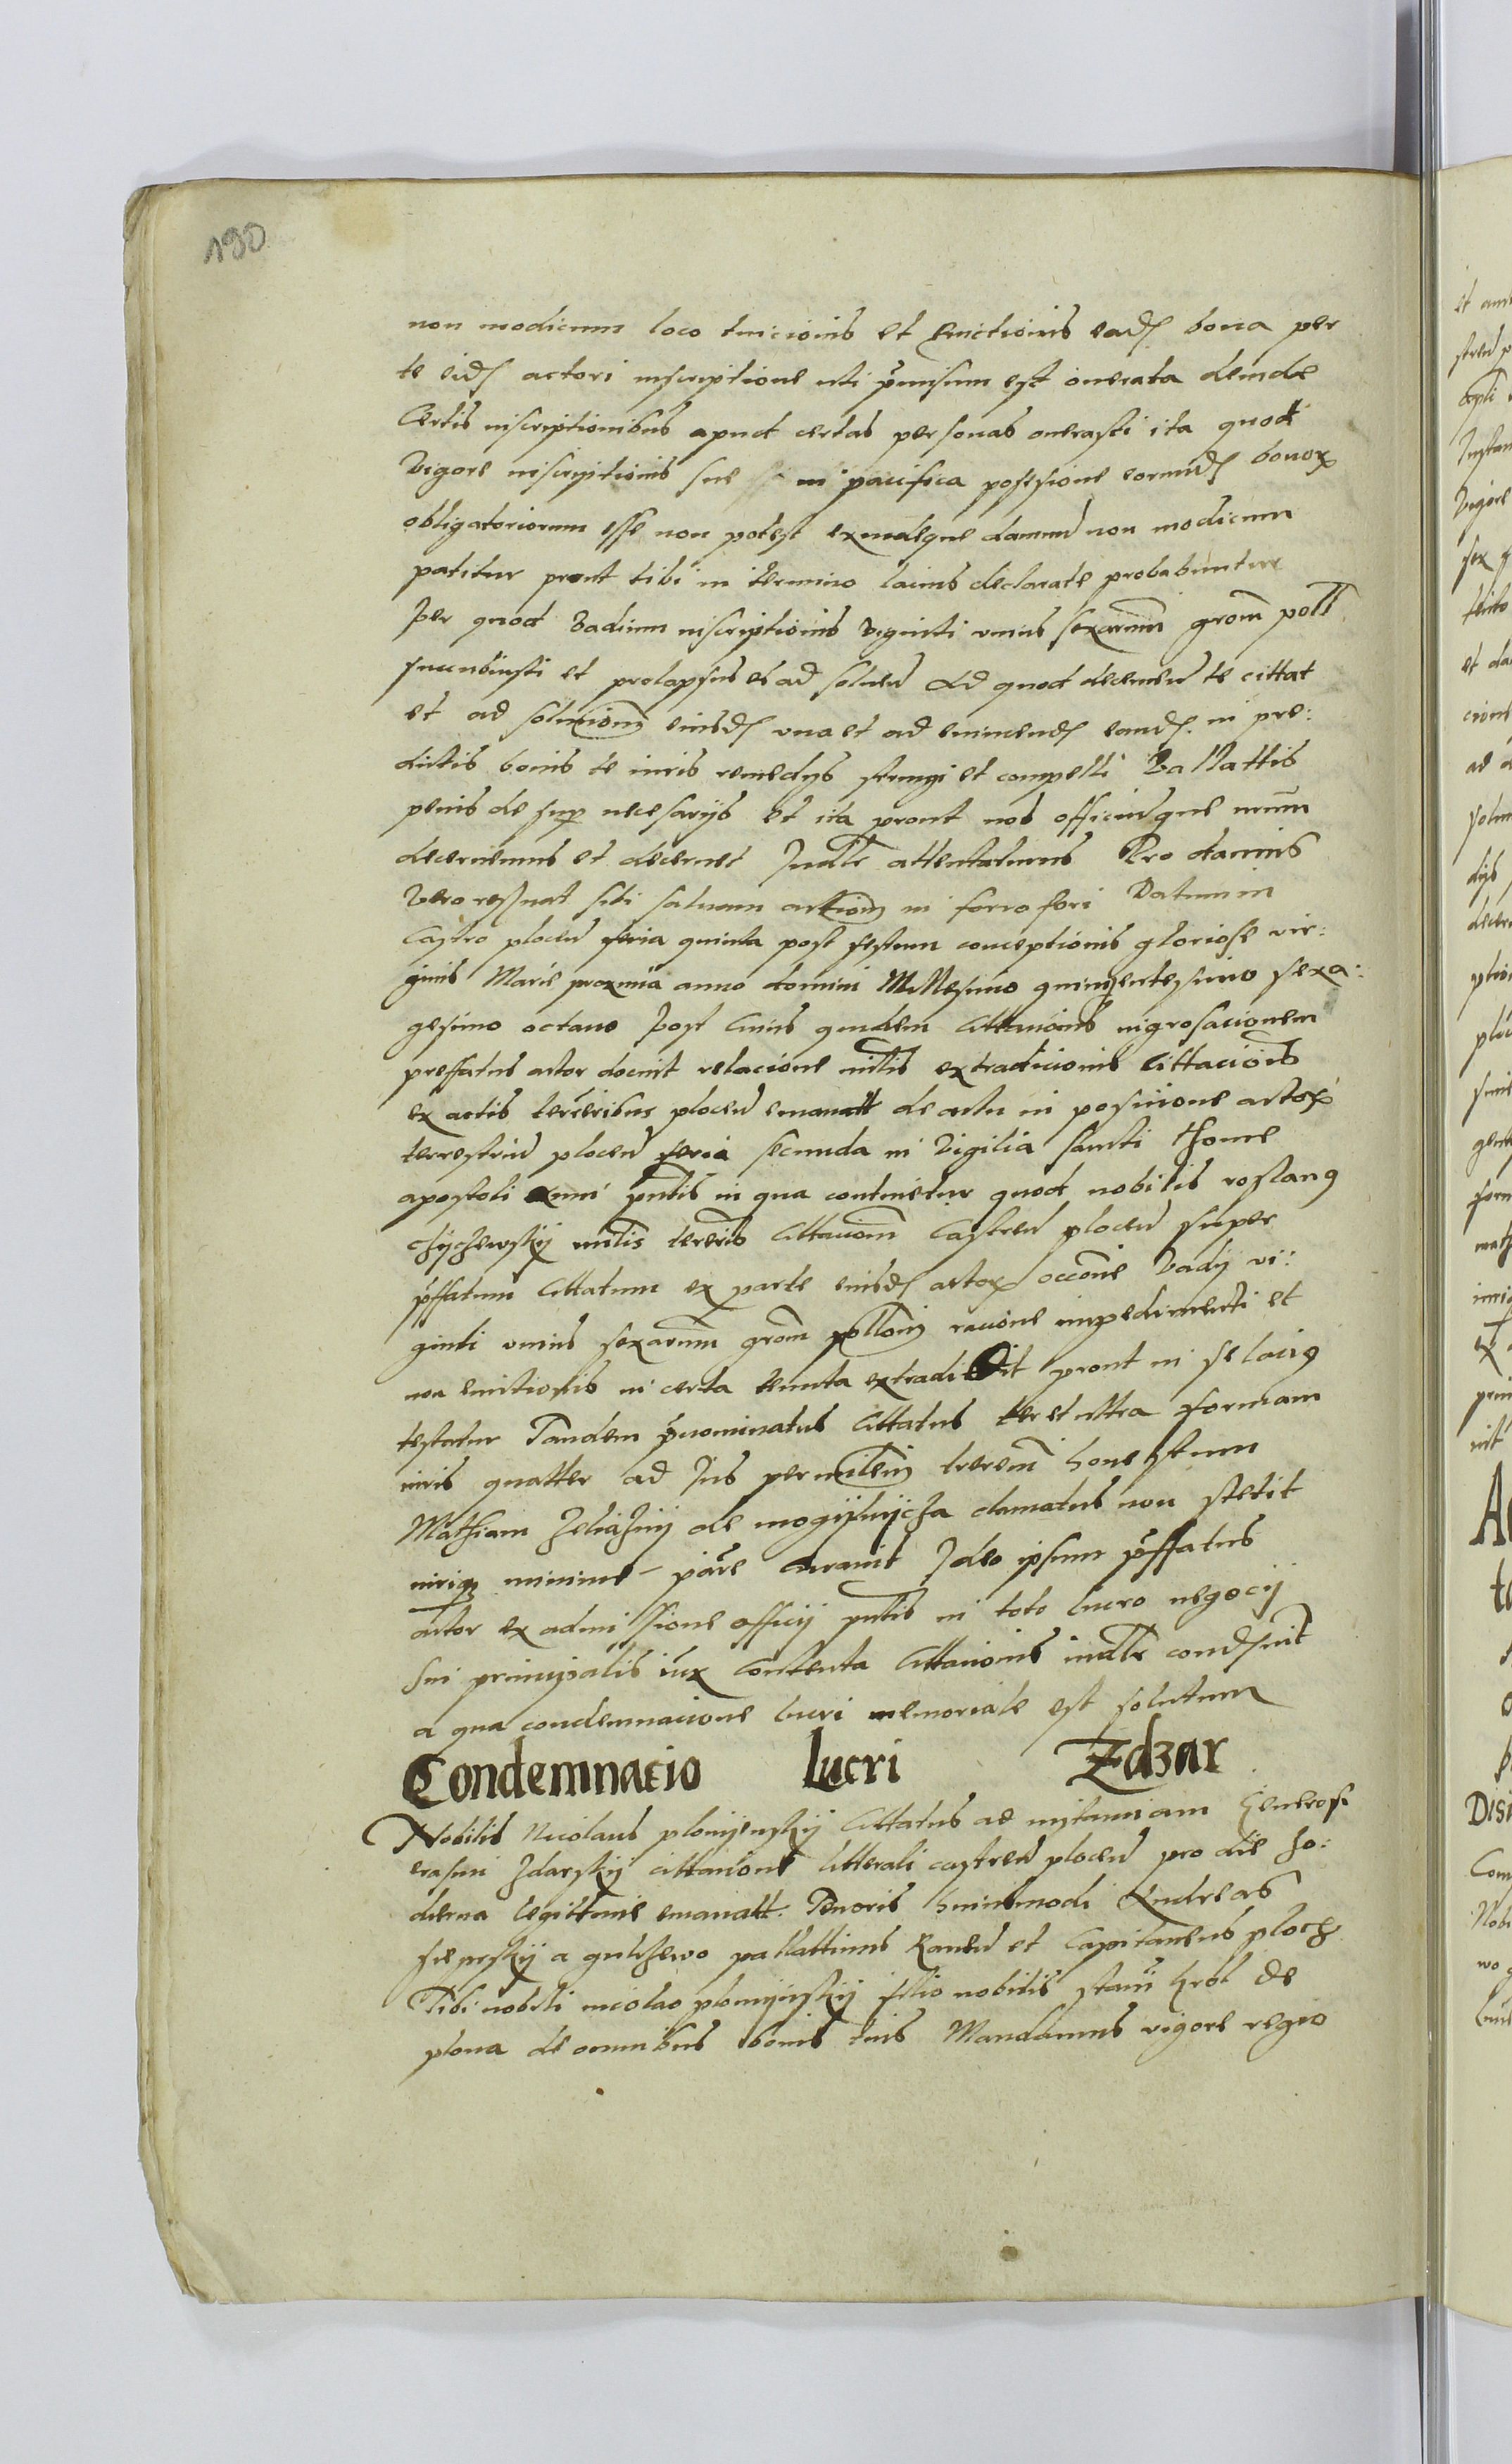 190
non modicum loco tuicionis et Evictionis ead bona per
te eid actori inscriptione uti p̄missum est onerata deinde
Certis inscriptionibus apud certas personas onerasti ita quod
Vigore inscriptionis sue in pacifica possesione eorund bonor
obligatoriorum esse non potest exindeque damnu non modicum
patitur prout tibi in termino lacius declarate probabuntur
Per quod Vadium inscriptionis Viginti unius sexarum grom poll
succubuisti et prolapsus es ad solven Ad quod decernen te cittat
et ad solucionem eiusd una et ad evincend eand in pre:
dictis bonis te iuris remedys stringi et compelli Vallattis
penis de sup necesarys et ita prout nos officiumque nrum
decernemus et decernet Judlr attentaturus Pro damnis
Vero reservat sibi saluam actionem in forro fori Datum in
Castro plocen feria quinta post festum conceptionis gloriose vir:
ginis Marie proxima anno domini Millesimo quingentesimo sexa:
gesimo octavo Post Cuius quidem Cittacionis ingrosacionem
preffatus actor docuit relacione mltis extradicionis Cittacionis
ex actis terrestribus plocen emanatt de actu in posicione actor
terrestriu plocen feria secunda in Vigilia sancti thome
apostoli anni pntis in qua continetur quod nobilis roslang
chychewsky mltis terrestris Cittacionem Castren plocen super
p̄ffatum Cittatum ex parte eiusd actor occone Vady vi:
ginti unius sexarum grom pollom racione impedimenti et
non evictionis in certa tenuta extradidit prout in se lacig
testatur Tandem p̄nominatus Cittatus ter et ultra formam
iuris quatter ad Jus per mlem trerem honestum
Mathiam Zeliasny de mogylnycza clamatus non stetit
minime pare Curavit Ideo ipsum p̄ffatus
actor ex admissione officy pntis in toto lucro negocy
sui principalis iux Contenta Cittacionis iudlr condemuit
a qua condemnacione lucri memoriale est solutum
Condemnacio Lucri Zdzar
Nobilis Nicolaus plonyensky Cittatus ad instanciam Generosi
erasmi Zdarsky cittacione litterali castren plocen pro die ho:
dierna legittime emanatt. Tenoris huiusmodi Andreas
sieprsky a gulczewo pallattinus Raven et Capitaneus ploch
Tibi nobili nicolao plonynsky filio nobilis stani krol de
plona de omnibus bonis tuis Mandamus vigore regio